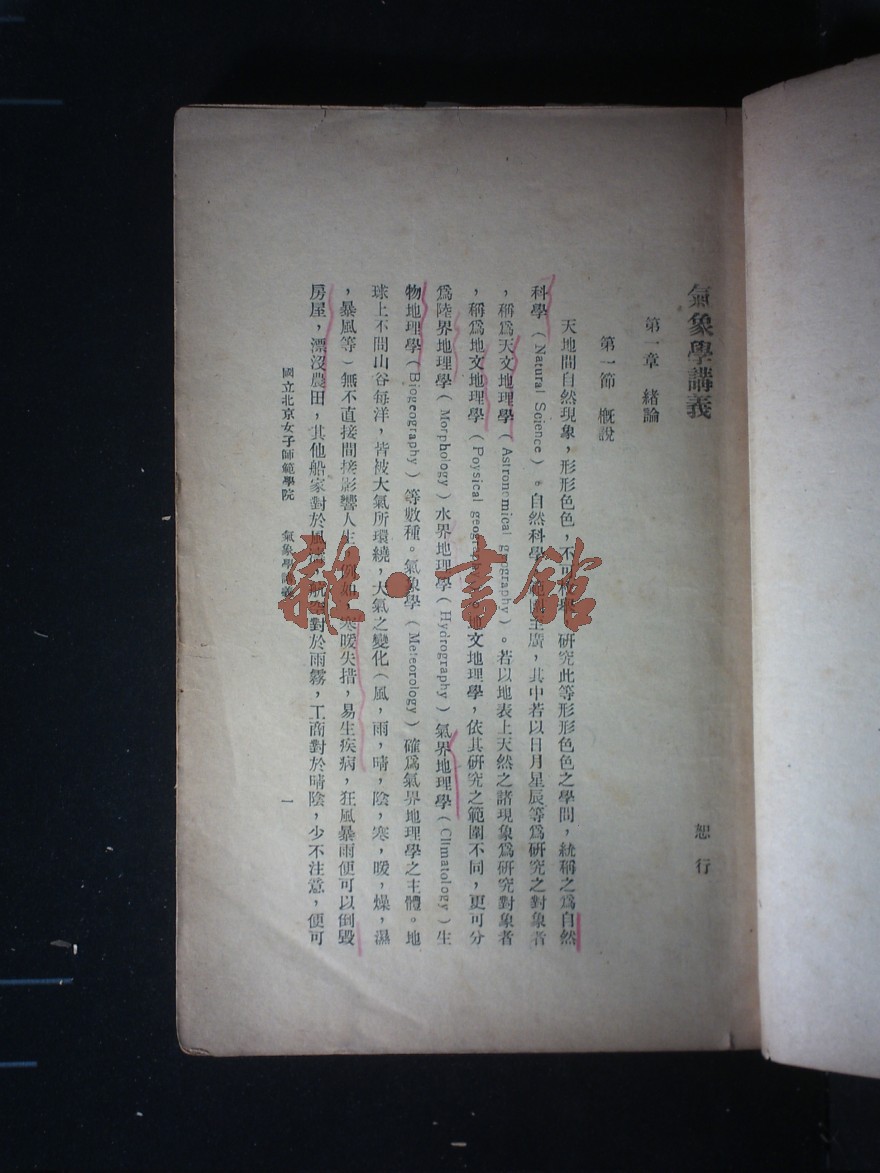 氣象學講義
恕行
第一章 緒論
第一節 概說
天地間自然現象，形形色色，不可枚舉，研究此等形形色色之學問，統稱之爲自然
科學（Natural Science）。自然科學範圍至廣，其中若以日月星辰等爲研究之對象者
，稱爲天文地理學（Astronomical geography）。若以地表上天然之諸現象爲研究對象者
，稱爲地文地理學（Poysical geography）。地文地理學，依其研究之範圍不同，更可分
爲陸界地理學（Morphology）水界地理學（Hydrography）氣界地理學（Climatology）生
物地理學（Biogeography）等數種。氣象學（Meteorology）確爲氣界地理學之主體。地
球上不問山谷每洋，皆被大氣所環繞，大氣之變化（風，雨，晴，陰，寒，暖，燥，濕
，暴風等）無不直接間接影響人生，例如，寒暖失措，易生疾病，狂風暴雨便可以倒毀
房屋，漂沒農田，其他船家對於風 航空對於雨霧，工商對於晴陰，少不注意，便可
國立北京女子師範學院 氣象學講義 一
雜·書館